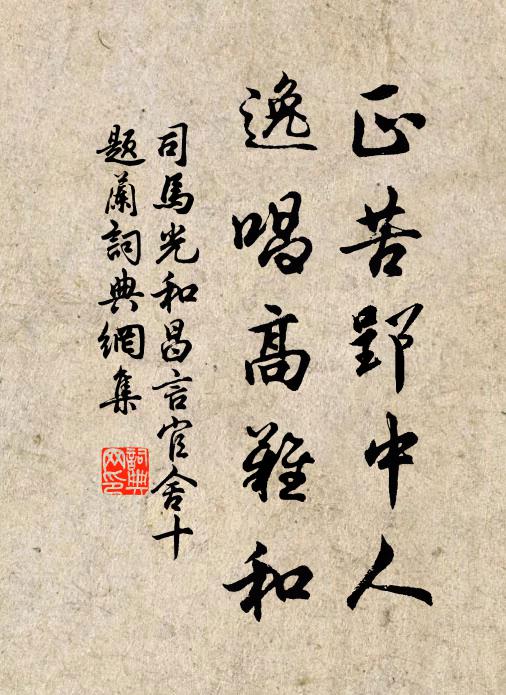 正苦郢中人
逸唱高難和
司馬光和昌言官舍十
題蘭詞典網集
詞典网印